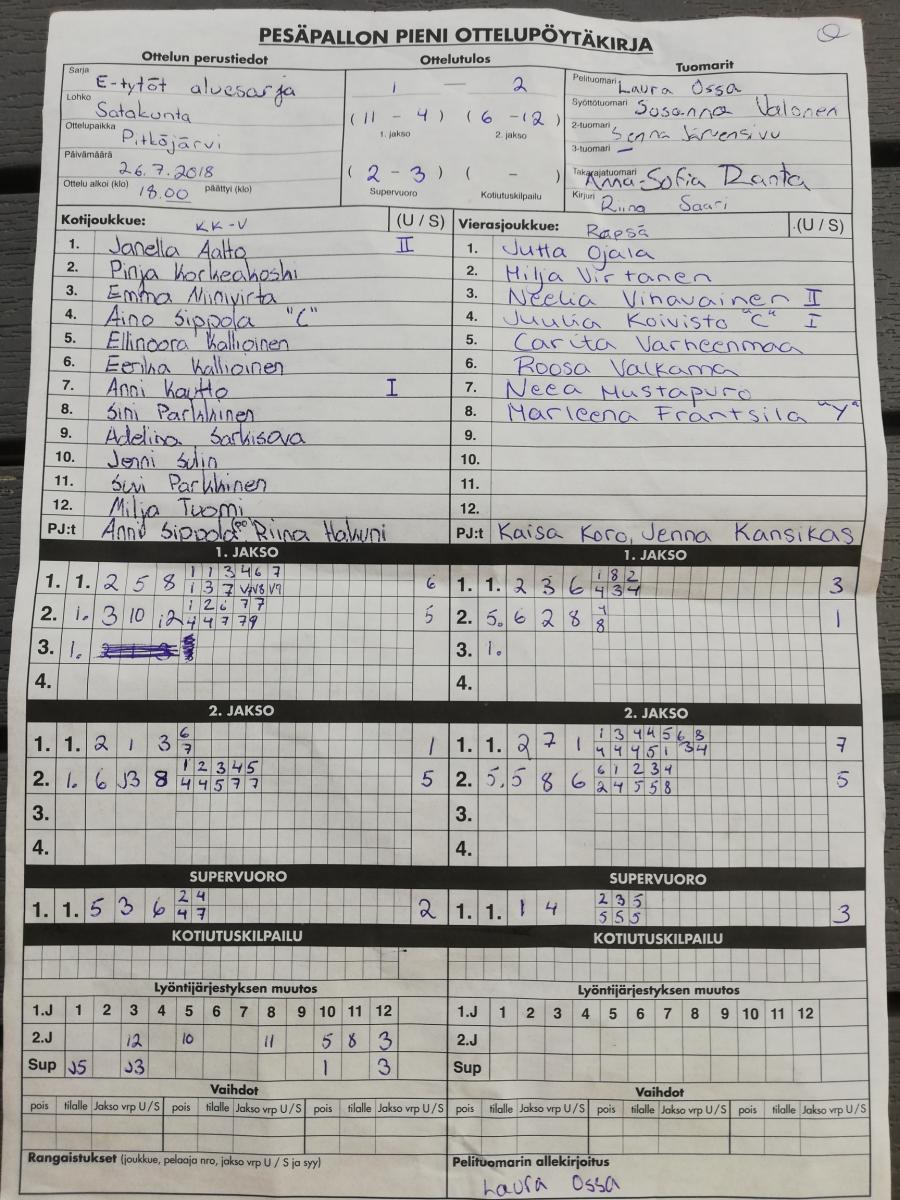 PESÄPALLON PIENI OTTELUPÖYTÄKIRJA
Ottelun perustiedot
Sarja E-tytöt aluesarja
Lohko Satakunta
Ottelupaikka Pitkäjärvi
Päivämäärä 26.7.2018
Ottelu alkoi (klo) 18.00 päättyi (klo)
Ottelutulos
1 — 2
(11 - 4) (6 - 12)
1. jakso 2. jakso
(2 - 3) ( - )
Supervuoro Kotiutuskilpailu
Tuomarit
Pelituomari Laura Ossa
Syöttötuomari Susanna Valonen
2-tuomari Senna Järvensivu
3-tuomari —
Takarajatuomari Anna-Sofia Ranta
Kirjuri Riina Saari
Kotijoukkue: KK-V (U / S)
1. Janella Aalto II
2. Pinja Korkeakoski
3. Emma Niinivirta
4. Aino Sippola "C"
5. Ellinoora Kallioinen
6. Eerika Kallioinen
7. Anni Kautto I
8. Sini Parkkinen
9. Adelina Sarkisova
10. Jenni Sulin
11. Suvi Parkkinen
12. Milja Tuomi
PJ:t Anni Sippola Riina Hakuni
Vierasjoukkue: Rapsä (U / S)
1. Jutta Ojala
2. Hilja Virtanen
3. Neelia Vihavainen II
4. Juulia Koivisto "C" I
5. Carita Varheenmaa
6. Roosa Valkama
7. Neea Mustapuro
8. Marleena Frantsila "Y"
9.
10.
11.
12.
PJ:t Kaisa Koro, Jenna Kansikas
1. JAKSO
1 1 3 4 6 7
1. 1. 2 5 8 1 3 7 V7 V8 V9 6
1 2 6 7 7
2. 1. 3 10 12 4 4 7 7 9 5
3. 1.
4.
1. JAKSO
1 8 2
1. 1. 2 3 6 4 3 4 3
4
2. 5. 6 2 8 8 1
3. 1.
4.
2. JAKSO
6
1. 1. 2 1 3 7 1
1 2 3 4 5
2. 1. 6 J3 8 4 4 5 7 7 5
3.
4.
2. JAKSO
1 3 4 4 5 6 8
1. 1. 2 7 1 4 4 4 5 1 3 4 7
6 1 2 3 4
2. 5. 5 8 6 2 4 5 5 8 5
3.
4.
SUPERVUORO
2 4
1. 1. 5 3 6 4 7 2
SUPERVUORO
2 3 5
1. 1. 1 4 5 5 5 3
KOTIUTUSKILPAILU
KOTIUTUSKILPAILU
Lyöntijärjestyksen muutos
1.J 1 2 3 4 5 6 7 8 9 10 11 12
2.J 12 10 11 5 8 3
Sup J5 J3 1 3
Lyöntijärjestyksen muutos
1.J 1 2 3 4 5 6 7 8 9 10 11 12
2.J
Sup
Vaihdot
pois tilalle Jakso vrp U / S pois tilalle Jakso vrp U / S pois tilalle Jakso vrp U / S
Vaihdot
pois tilalle Jakso vrp U / S pois tilalle Jakso vrp U / S pois tilalle Jakso vrp U / S
Rangaistukset (joukkue, pelaaja nro, jakso vrp U / S ja syy)
Pelituomarin allekirjoitus
Laura Ossa